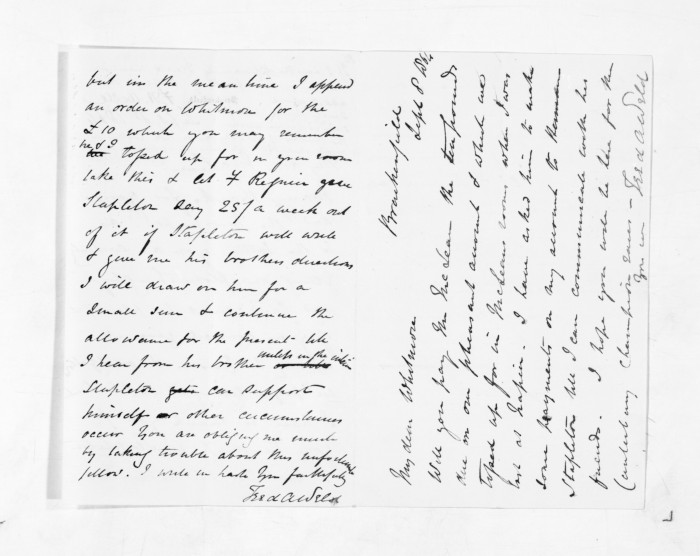 but in the mean time I append
an order on Whitmore for the
£10 which you may remember
he & I tossed up for in your room
take this & let F Regnier give
Stapleton say 25/ a week out
of it if Stapleton will write
& give me his brothers directions
I will draw on him for a
small sum & continue the
allowance for the present till
I hear from his brother unless in the interim
Stapleton gets can support
himself or other circumstances
occur You are obliging me much
by taking trouble about this unfortunate
fellow. I write in haste Yrs faithfully
Fred A Weld
Brackenfield
Sept 8
My dear Whitmore
Will you pay Mr McLean the ten pounds
due on our pheasant account & which we
tossed up for in McLeans room when I was
last at Napier. I have asked him to make
some payments on my account to
Stapleton till I can communicate with his
friends. I hope you will be here for the
Canterbury Champion races —
Yrs ever
Fred A Weld